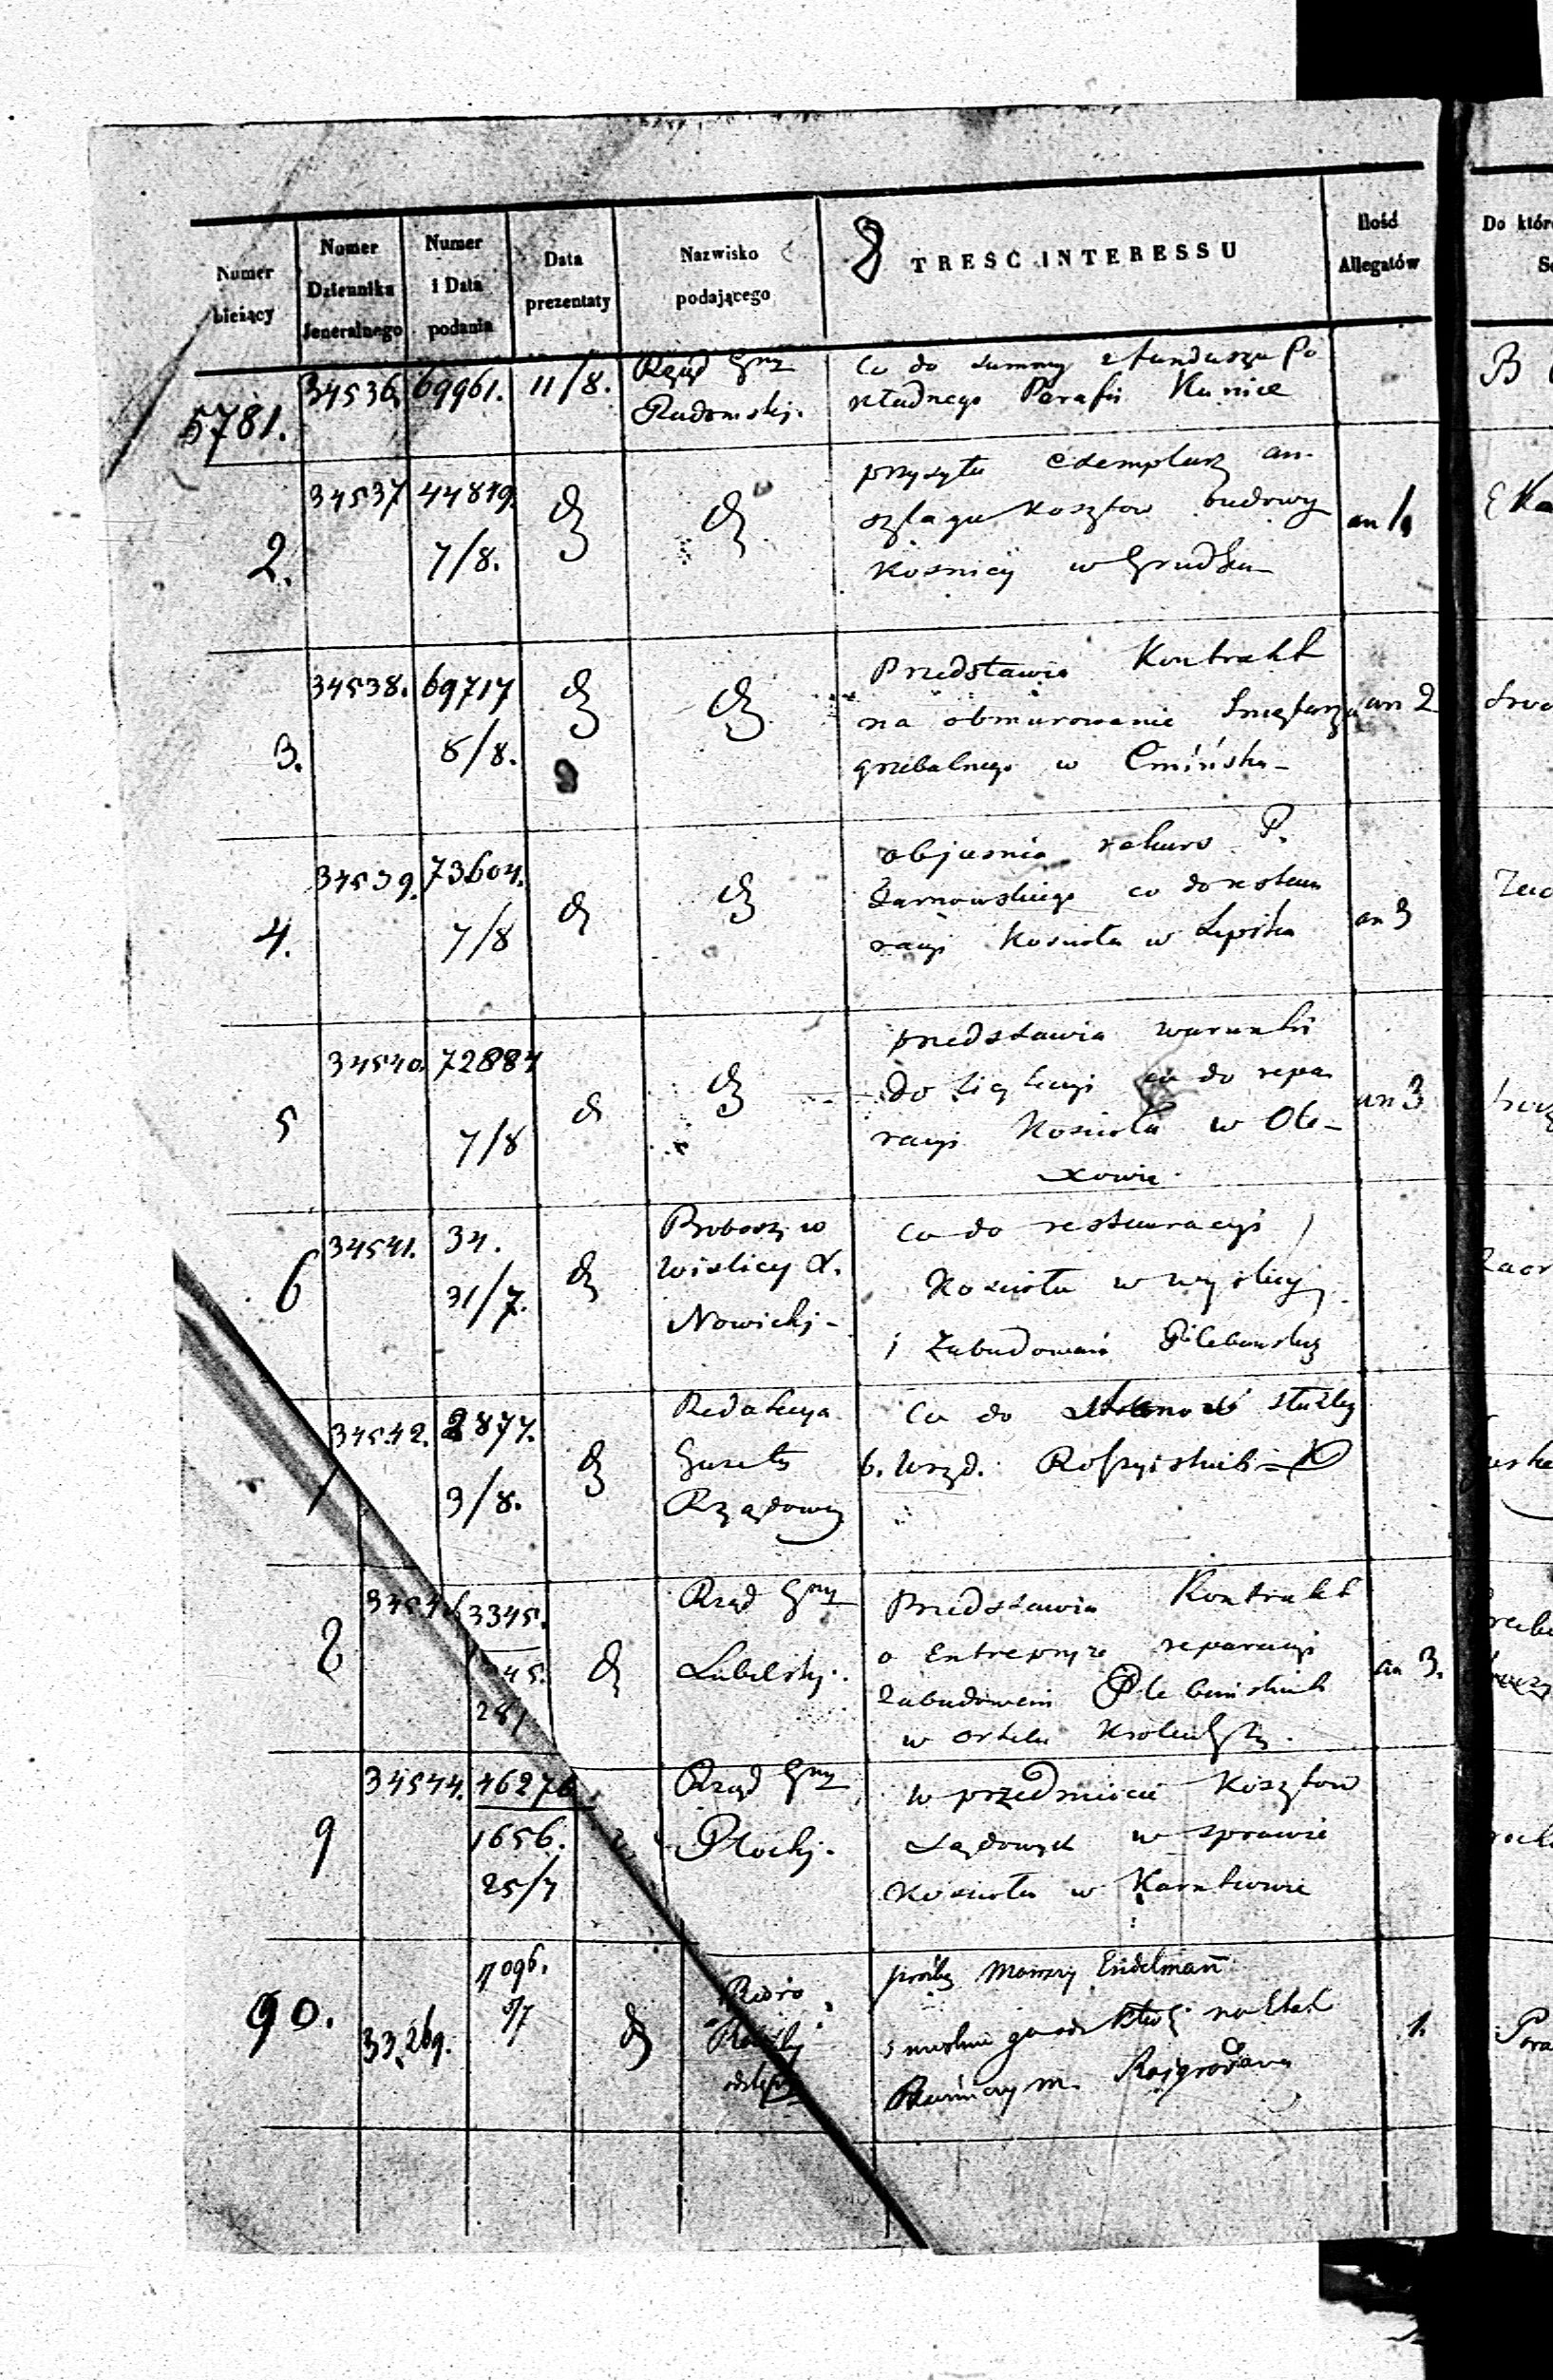 Numer bieżący
Numer Dziennika Jeneralnego
Numer i Data podania
Data prezentaty
Nazwisko podającego
8 TREŚĆ INTERESSU
Ilość Allegatów
5781.
34536
69961.
11/8.
Rząd Gny
Radomskj.
Co do summy z funduszu Po
kładnego Parafii Kunice
2.
34537
44819.
7/8.
przysyła exemplarz an-
szlagu kosztow budowy
Kosnicy w
an 1
3.
34538.
69717
8/8.
Przedstawia Kontrakt
na obmurowanie Smętarza
grzebalnego w Cmińsku
an 2
4.
34539.
73604.
7/8
objasnia rekurs P.
Żarnowskiego co do restau
racyi Kościoła w
an 3
5
34540.
72884
7/8
przedstawia warunki
do licytacyi co do repa
racyi Kościoła w Ole-
xowie
an 3
6
34541.
34.
31/7.
Proboszcz w
Wislicy X.
Nowickj
Co do restauracyi
Kościoła w Wyślicy
i Zabudowań Plebanskich
7
34542.
2877.
3/8.
Redakcya
Gazety
Rządowej
Co do służby
b. Urzęd. Rossyiskich
8
3345.
Rząd Gny
Lubelskj.
Przedstawia Kontrakt
o Entrepryze reparacyi
Zabudowań Plebańskich
w Ortelu Krolewskim.
an 3.
9
34544.
46276
1656.
25/7
Rząd Gny
Płockj.
w przedmiocie Kosztow
Sądowych w sprawie
Kościoła w Karniewie
90.
33,269.
11096.
Biuro
prośbę Mowszy Eidelmann
Bóźniczy m. Rajgrodowi
1.